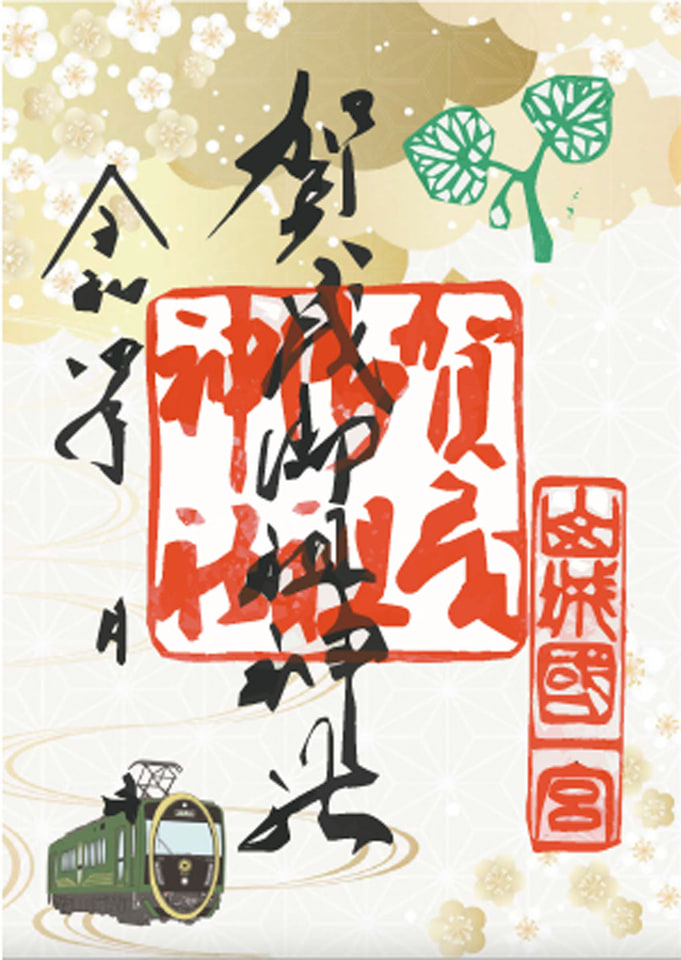 山城國一宮
賀茂御祖神社
賀茂
御祖
神社
令和 年 月